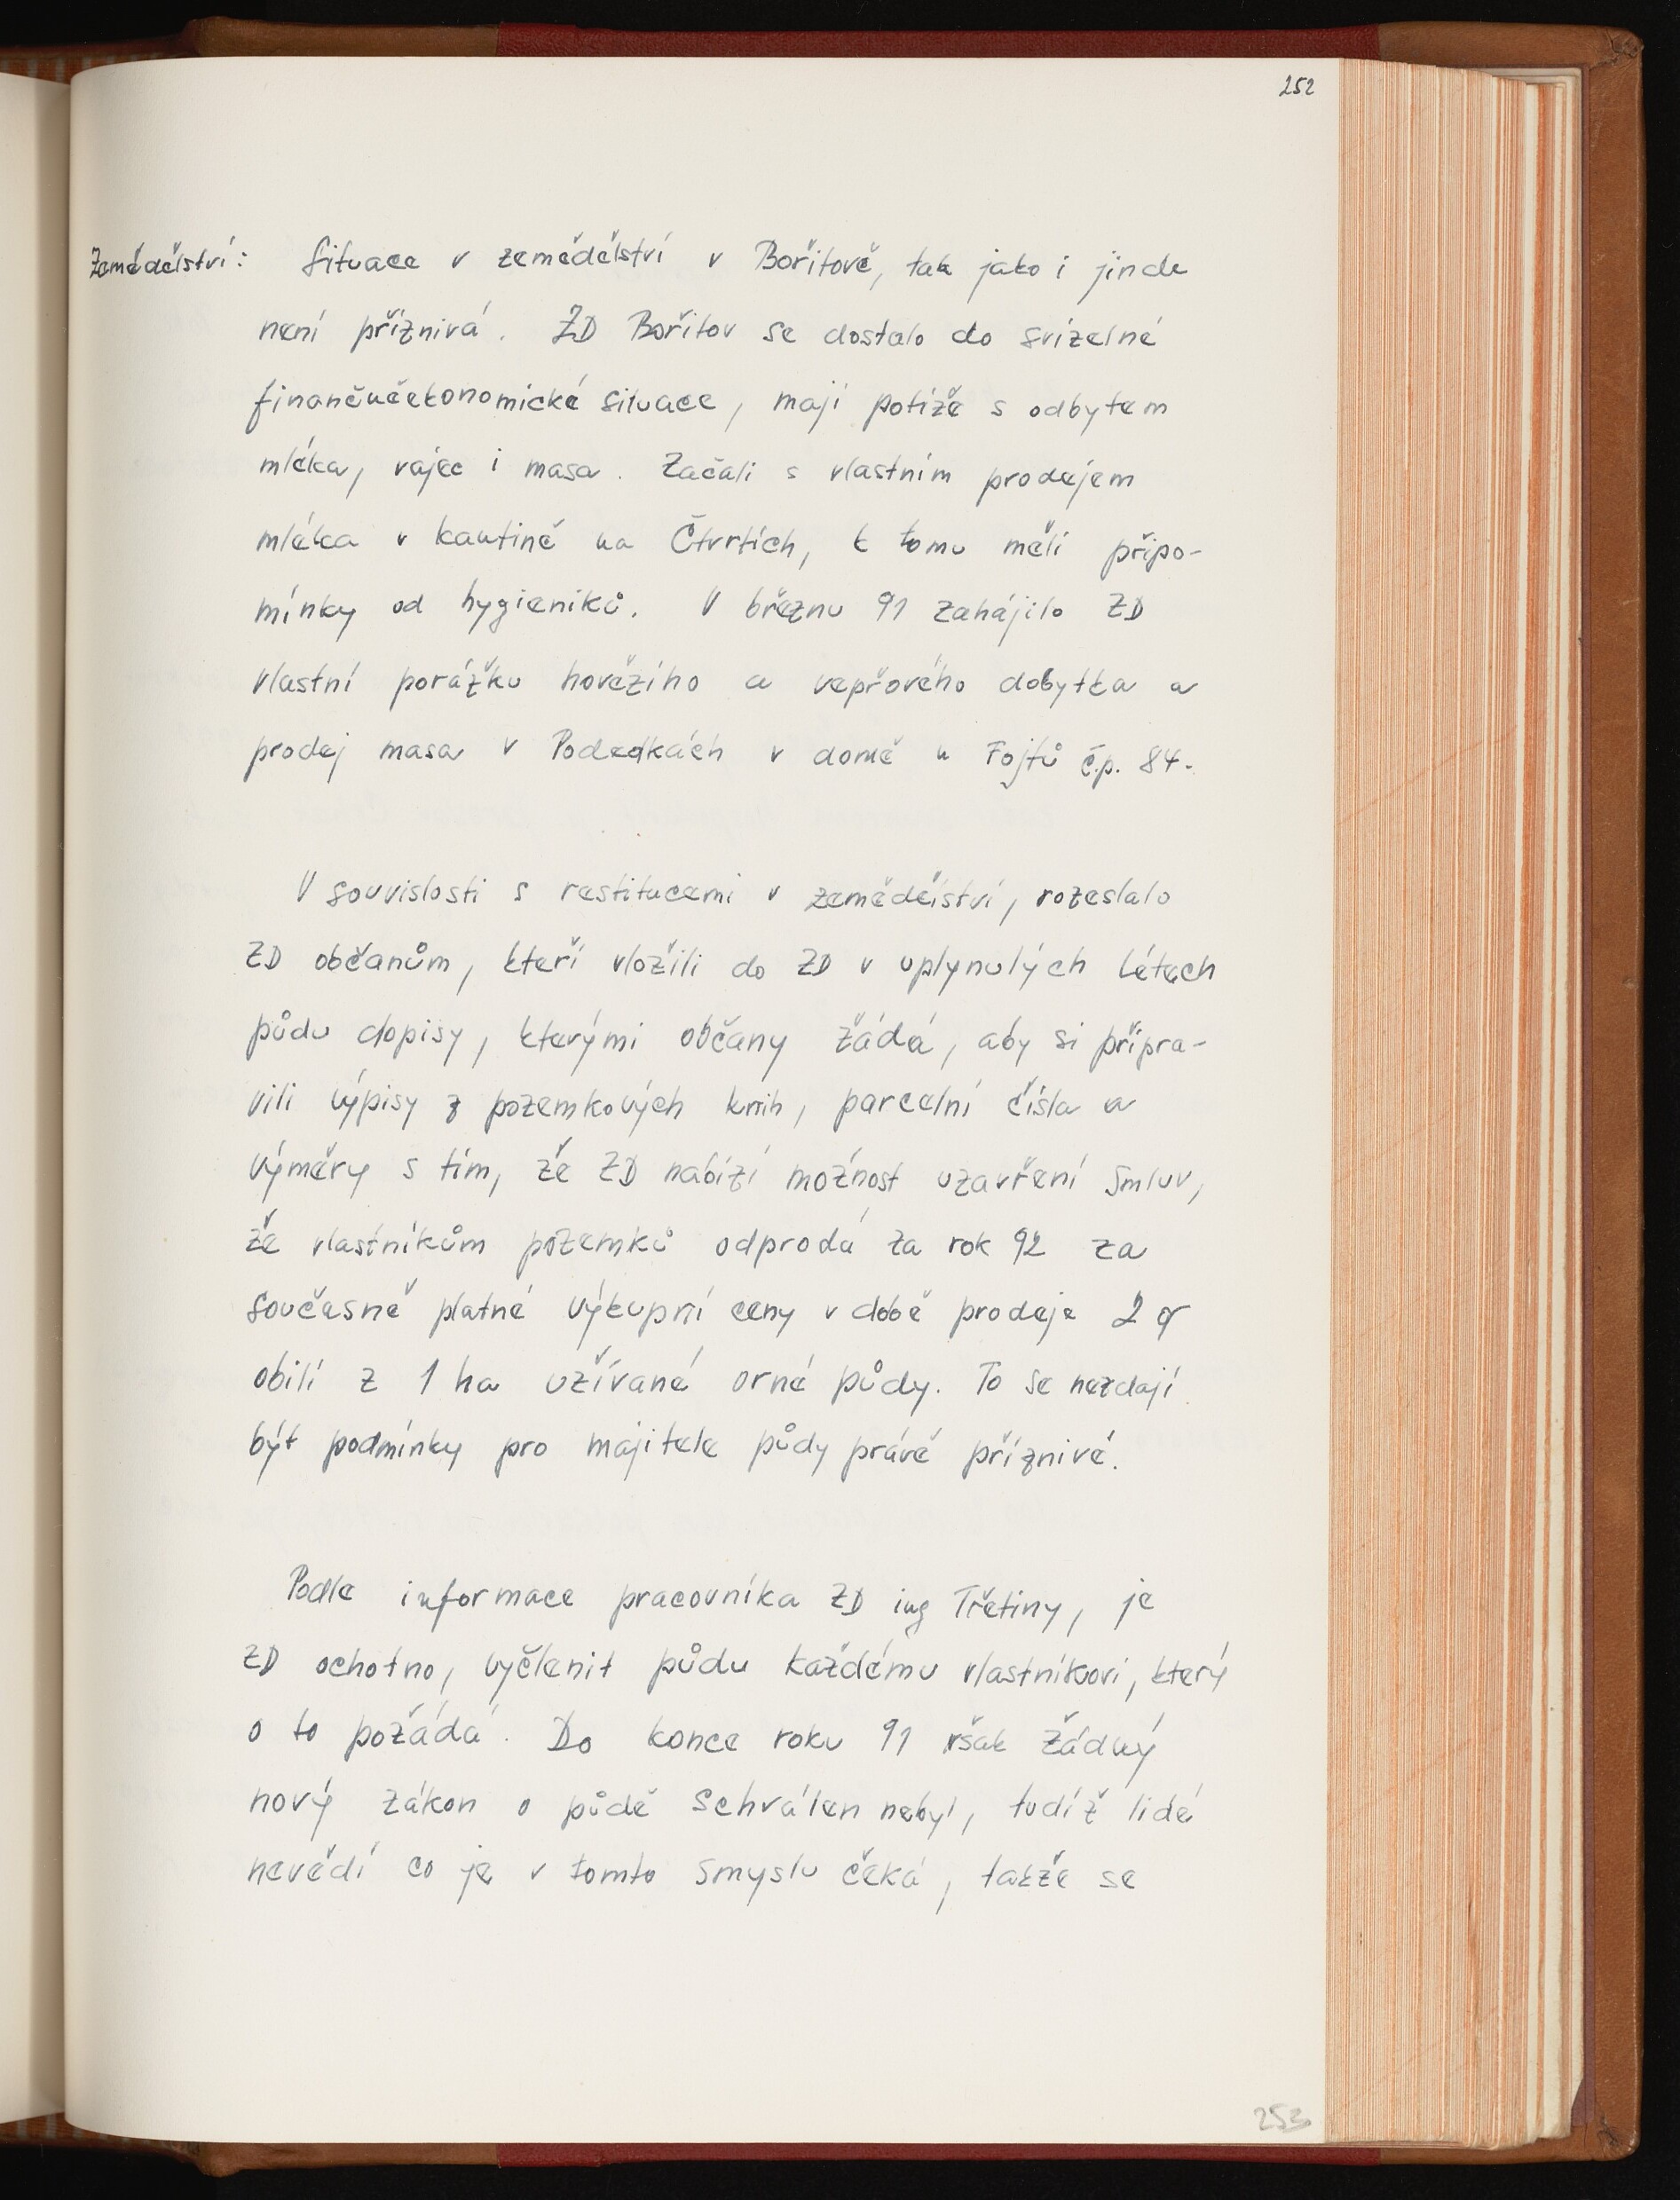 252
Zemědělství: Situace v zemědělství v Bořitově, tak jako i jinde
není příznivá. ZD Bořitov se dostalo do svízelné
finančněekonomické situace, mají potíže s odbytem
mléka, vajec i masa. Začali s vlastním prodejem
mléka v kantině na Čtvrtích, k tomu měli připo-
mínky od hygieniků. V březnu 91 zahájilo ZD
vlastní porážku hovězího a vepřového dobytka a
prodej masa v Podedkách v domě u Fojtů č.p. 84.
V souvislosti s restitucemi v zemědělství, rozeslalo
ZD občanům, kteří vložili do ZD v uplynulých létech
půdu dopisy, kterými občany žádá, aby si připra-
vili výpisy z pozemkových knih, parcelní čísla a
výměry s tím, že ZD nabízí možnost uzavření smluv,
že vlastníkům pozemků odprodá za rok 92 za
současně platné výkupní ceny v době prodeje 2 q
obilí z 1 ha užívané orné půdy. To se nezdají
být podmínky pro majitele půdy právě příznivé.
Podle informace pracovníka ZD ing Třetiny, je
ZD ochotno, vyčlenit půdu každému vlastníkovi, který
o to požádá. Do konce roku 91 však žádný
nový zákon o půdě schválen nebyl, tudíž lidé
nevědí co je v tomto smyslu čeká, takže se
253